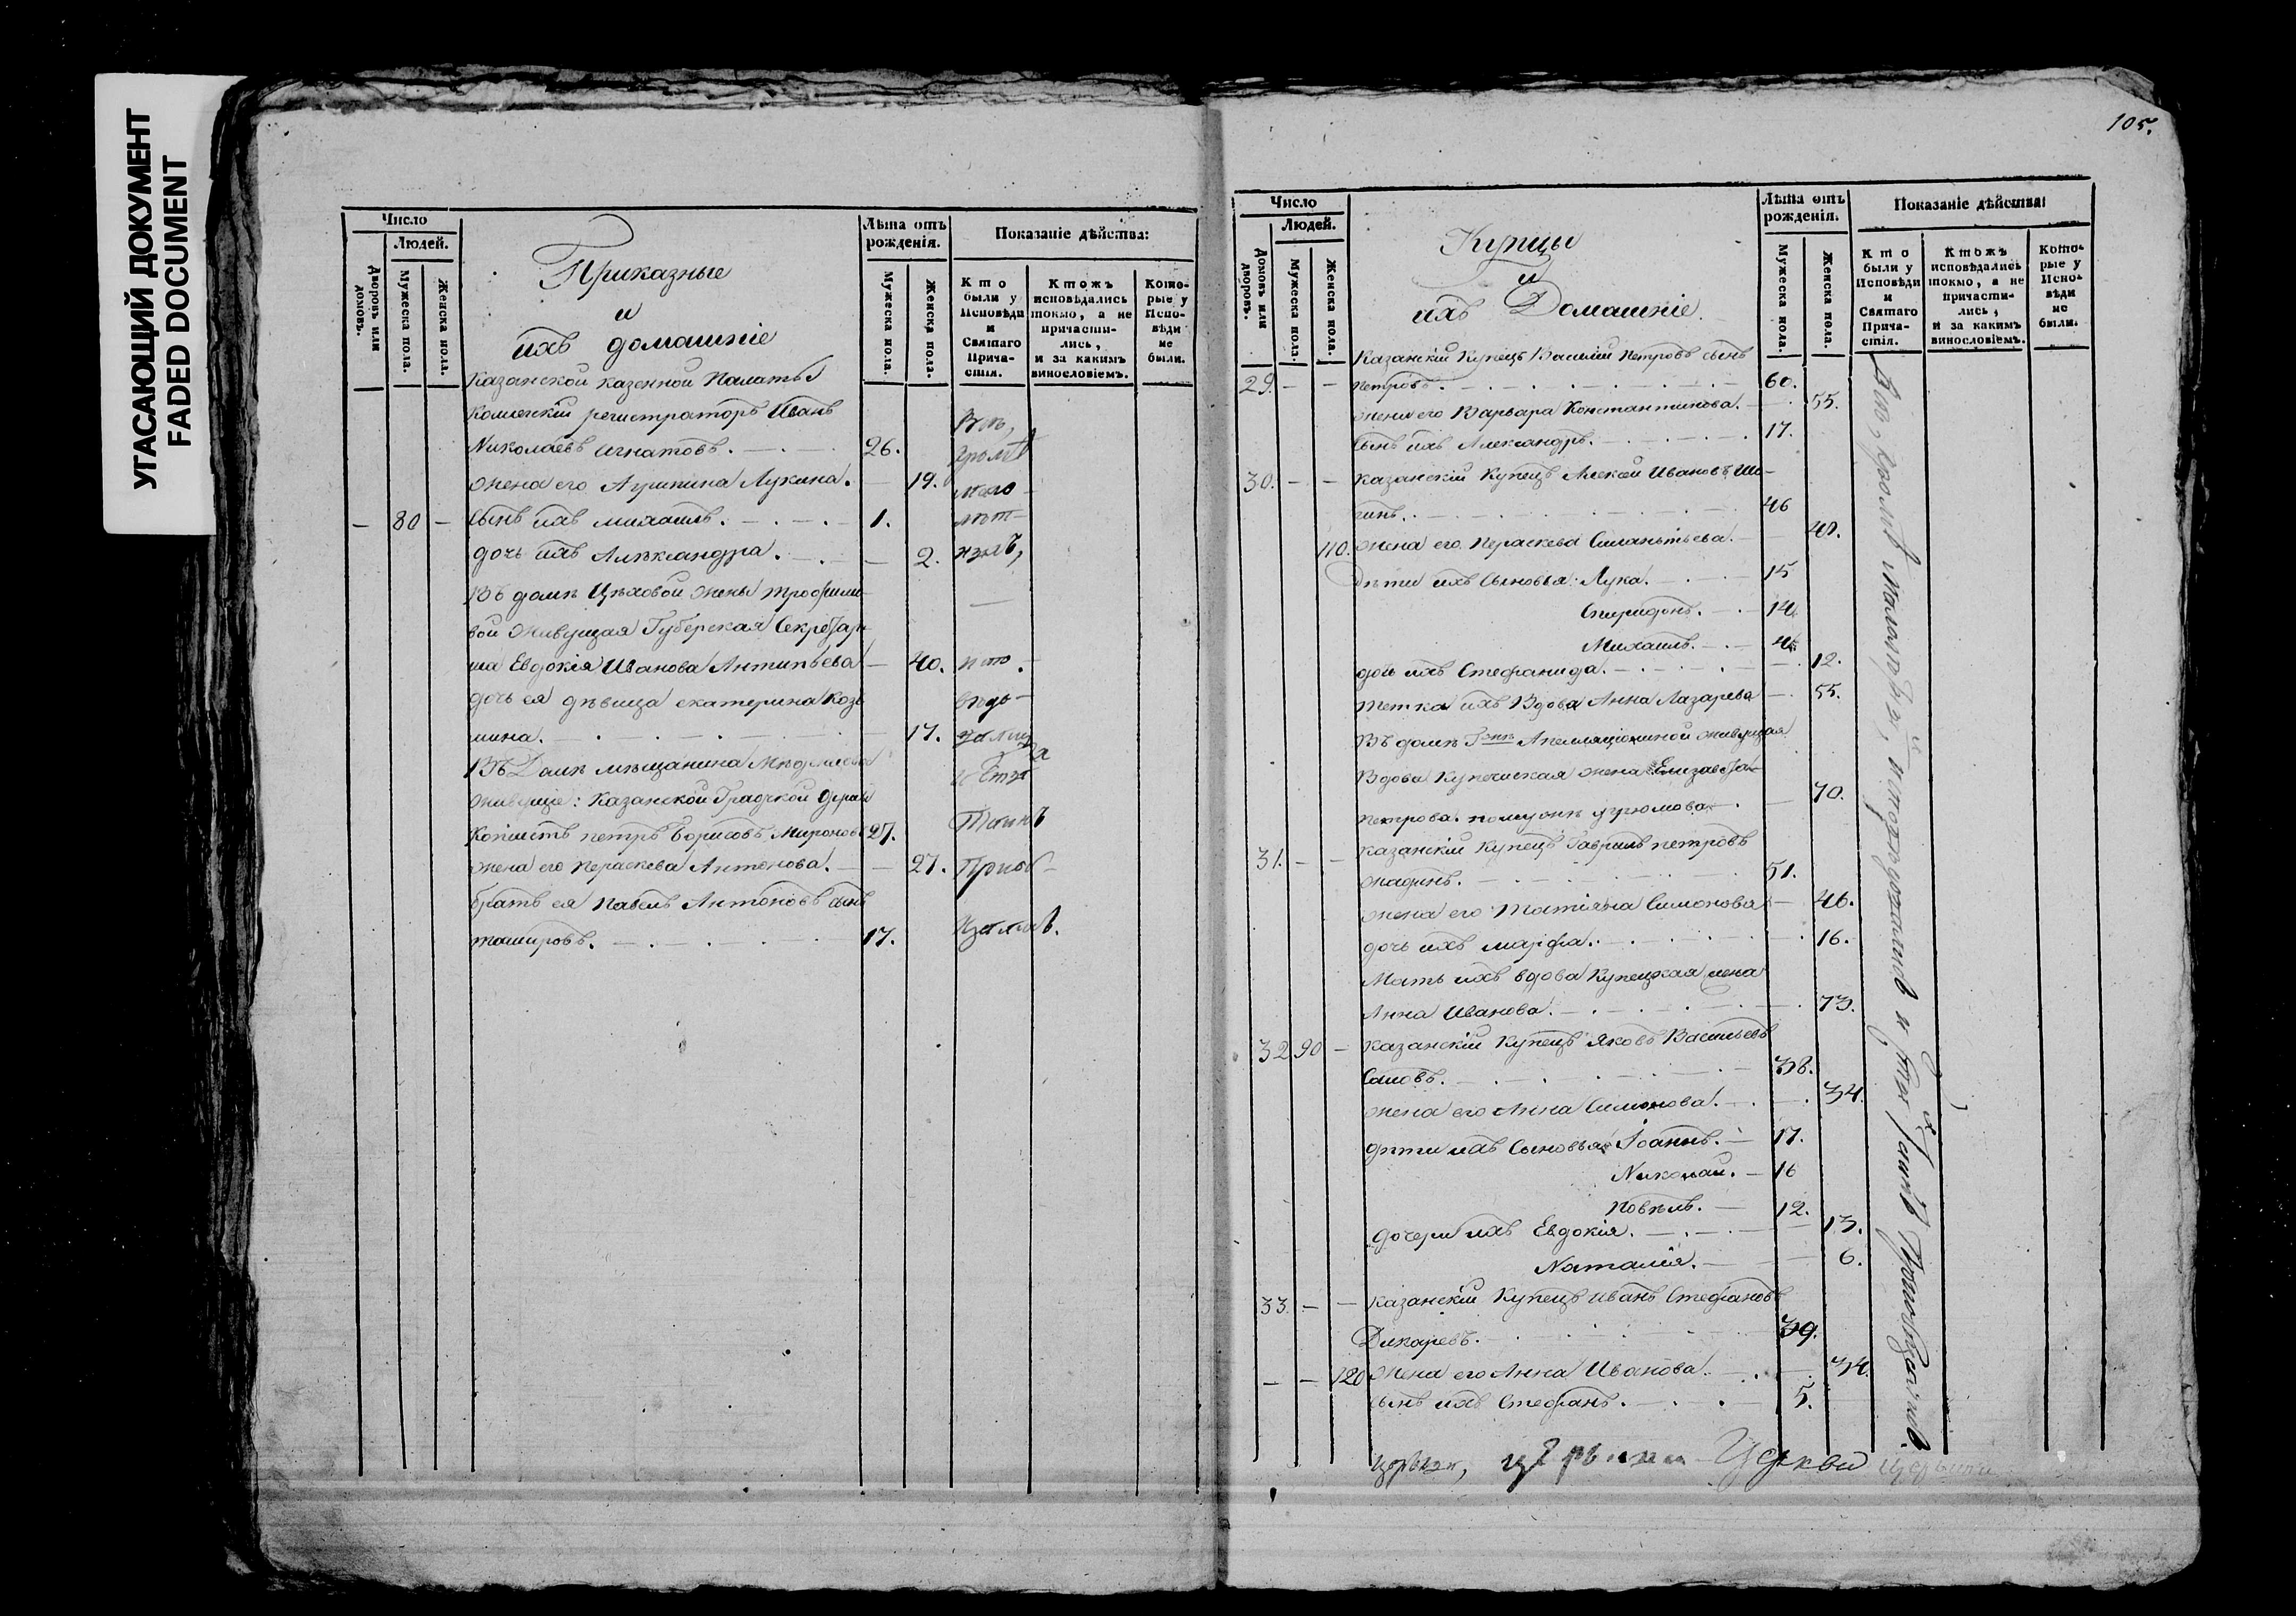 УГАСАЮЩИЙ ДОКУМЕНТ
FADED DOCUMENT
Число
Людей.
Дворовъ или домовъ.
Мужеска пола.
Женска пола.
Приказные
и
ихъ домашніе
Лѣта отъ рожденія.
Мужеска пола.
Женска пола.
Показаніе дѣйства:
Кто были у Исповѣди и Святаго Причастія.
Ктожъ исповѣдались токмо, а не причастились, и за какимъ винословіемъ.
Которые у Исповѣди не были.
Казанской казенной Палаты
Колежскій регистраторъ Иванъ
Николаевъ Игнатовъ. 26.
жена его Агрипина Лукина. 19.
– 80 – сынъ ихъ михаилъ. 1.
дочь ихъ Александра. 2.
Въ домѣ Цѣховой жены трофимо-
вой живущая Губерская Секретар-
ша Евдокія Иванова Антипьева 40.
дочь ея дѣвица екатерина Козь
мина. 17.
Въ Домѣ мѣщанина
живущіе: Казанской Градской
Копіистъ петръ Борисовъ Мироновъ 27.
жена его Параскева Антонова. 27.
братъ ея Павелъ Антоновъ сынъ
таировъ. 17.
105.
Число
Людей.
Домовъ или дворовъ.
Мужеска пола.
Женска пола.
Купцы
и
ихъ Домашніе.
Лѣта отъ рожденія.
Мужеска пола.
Женска пола.
Показаніе дѣйства:
Кто были у Исповѣди и Святаго Причастія.
Ктожъ исповѣдались токмо, а не причастились, и за какимъ винословіемъ.
Которые у Исповѣди не были.
Казанскій Купецъ Василій Петровъ сынъ
29. – – Петровъ. 60.
жена его Варвара Константинова. 55.
сынъ ихъ Александръ. 17.
30. – – Казанскій Купецъ Алексей Ивановъ Ши-
гинъ. 46
110. жена его Пераскева Силантьева. 40.
Дѣти ихъ Сыновья: Лука. 15
Спиридонъ. 14
Михаилъ.
дочь ихъ Стефанида. 12.
тетка ихъ Вдова Анна Лазарева 55.
Въ домѣ живущая
Вдова Купеческая жена Елизавета
Петрова 70.
31. – – Казанскій Купецъ Гавриилъ петровъ
жадинъ. 51.
жена его татіяна Симонова 46.
дочь ихъ марфа. 16.
Мать ихъ вдова Купецкая жена
Анна Иванова. 73.
32 90 – Казанскій Купецъ Яковъ Васильевъ
38.
жена его Анна Симонова. 34.
дѣти ихъ Сыновья Іоаннъ. 17.
Николай. 16
Повелъ. 12.
дочери ихъ Евдокія. 13.
Наталія. 6.
33. – – Казанскій Купецъ Иванъ Стефановъ
Дикаревъ. 39.
– – 120 жена его Анна Иванова. 34.
сынъ ихъ Стефанъ. 5.
Церкви